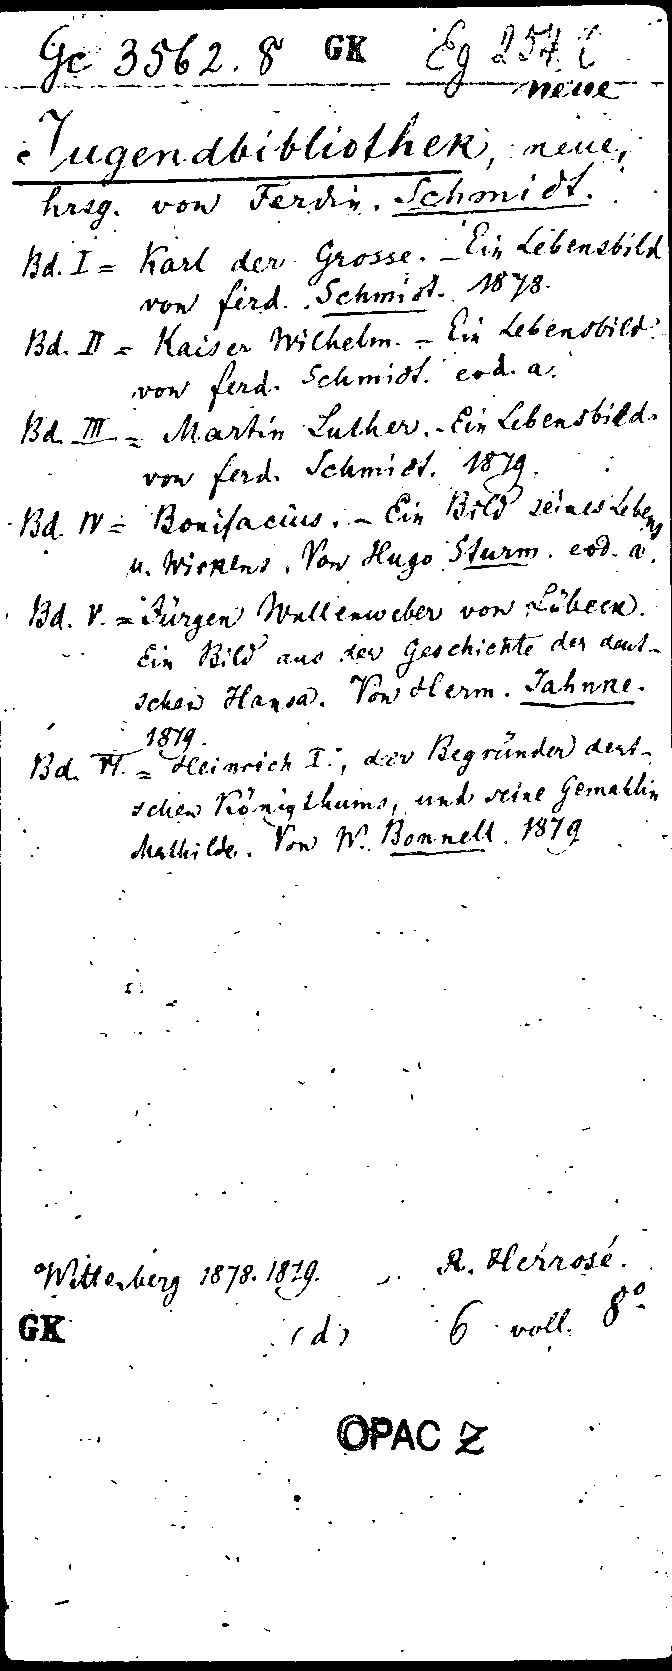 Gc 3562.8 GK Eg 254
neue
Jugendbibliothek, neue,
hrsg. von Ferdin. Schmidt.
Bd. I = Karl der Grosse. – Ein Lebensbild
von ferd. Schmidt. 1878.
Bd. II = Kaiser Wilhelm. – Ein Lebensbild
von ferd. Schmidt. eod. a.
Bd. III = Martin Luther. – Ein Lebensbild
von ferd. Schmidt. 1879.
Bd. IV = Bonifacius. – Ein Bild seines Lebens
u. Wirkens. Von Hugo Sturm. eod. a.
Bd. V. = Jürgen Wullenweber von Lübeck.
Ein Bild aus der Geschichte der deut-
schen Hansa. Von Herm. Jahnke.
1879.
Bd. VI. = Heinrich I., der Begründer deut-
schen Königthums, und seine Gemahlin
Mathilde. Von W. Bonnell. 1879
Wittenberg 1878.1879. R. Herrosé.
GK (d) 6 voll. 8°
OPAC Z